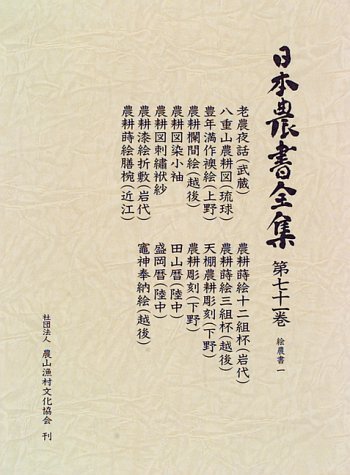 日本農書全集 第七十一巻 絵農書 一
老農夜話(武蔵)
八重山農耕図(琉球)
豊年満作襖絵(上野)
農耕欄間絵(越後)
農耕図染小袖
農耕図刺繍袱紗
農耕漆絵折敷(岩代)
農耕蒔絵膳椀(近江)
農耕蒔絵十二組杯(岩代)
農耕蒔絵三組杯(越後)
天棚農耕彫刻(下野)
農耕彫刻(下野)
田山暦(陸中)
盛岡暦(陸中)
竈神奉納絵(越後)
社団法人 農山漁村文化協会 刊